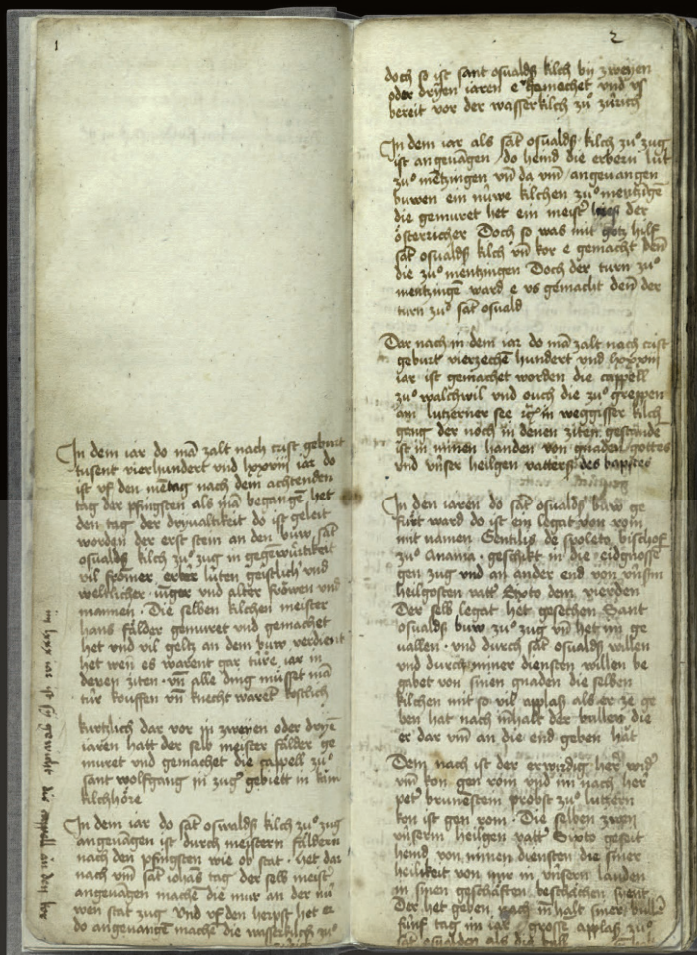 1
In dem iar do mā zalt nach crist geburt
tusent vierhundert und lxxviij iar do
ist vf den mētag nach dem achtenden
tag der pfingsten als mā begangē het
den tag der dryualtikeit do ist geleit
worden der erst stein an den buw sāt
osualds kilch zuͦ zug in gegēwúrtikeit
vil fromer erber lúten geistlich und
weltlicher iūger und alter frowen und
mannen. Die selben kilchen meister
hans fälder gemuret und gemachet
het und vil geltz an dem buw verdient
het wen es warent gar túre iar in
denen ziten. vn̄ alle ding muͦsset mā
túr kouffen vn̄ knecht warēt kostlich
kurtzlich dar vor in zweyen oder dryē
iaren hatt der selb meister fälder ge
muret und gemachet die cappell zuͦ
sant wolfgang in zug gebiett in kām
kilchhöre
In dem iar do sāt oswalds kilch zuͦ zug
angeuāgen ist durch meistern fäldern
nach den pfingsten wie ob stat. het dar
nach vm̄ sāt iohās tag der selb meist
angeuagen mache die mur an der nú
wen stat zug Und vf den herpst het er
do angeuangē mache die wasserkilch zuͦ
2
doch so ist sant osualds kilch by zweyen
oder dryen iaren e gemachet und vs
bereit vor der wasserkilch zuͦ zúrich
In dem iar als sāt osualds kilch zuͦ zug
ist angeuāgen do hend die erbern lút
zuͦ mētzingen vn̄ da vm̄ angeuangen
buwen ein núwe kilchen zuͦ mentzigē
die gemuret het ein meist der
österricher Doch so was mit gotz hilf
sāt osualds kilch vn̄ kor e gemacht den̄
die zuͦ mentzingen Doch der turn zuͦ
mentzingē ward e vs gemacht den̄ der
turn zuͦ sāt osuald
Dar nach in dem iar do mā zalt nach crist
geburt vierzechē hundert und lxxxiij
iar ist gemachet worden die cappell
zuͦ walchwil und ouch die zuͦ greppen
am lutzerner see in weggisser kilch
geng der noch in denen ziten gestunde
ist in minen handen von gnaden gottes
und unser heilgen vatters des bapstes
In den iaren do sāt osualds buw ge
fúrt ward do ist ein legat von rom
mit namen Gentilis de spoleto bischof
zuͦ Anania. geschikt in die eidgnosse
gen zug und an ander end von únsm
heilgosten vatt Sixto dem vierden
Der selb legat het gesechen Sant
osualds buw zuͦ zug vn̄ het im ge
uallen. und durch sāt osualds willen
und durch miner diensten willen be
gabet von sinen gnaden die selben
kilchen mit so vil applas als er ze ge
ben hat nach inhalt der bullen die
er dar vm̄ an die end geben hat
Dem nach ist der erwirdig her wid
vm̄ kon gen rom und im nach her
pet brunestein probst zuͦ lutzern
kon ist gen rom. Die selben zwen
únserm heilgen vatt Sixto geseit
hend von minen diensten die siner
heilikeit von mir in únsern landen
in sinen geschäften beschächen syent
Der het geben nach inhalt siner bulle
fúnf tag im iar grosse applas zuͦ
sāt osualden als die bull